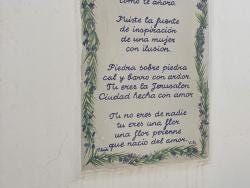 como te añoro.
Fuiste la fuente
de inspiración
de una mujer
con ilusión.
Piedra sobre piedra
cal y barro con ardor.
Tu eres la Jerusalen
Ciudad hecha con amor
Tu no eres de nadie
tu eres una flor
una flor perenne
que nacio del amor.